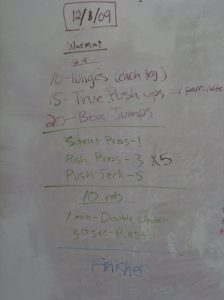 12/8/09
Warmup
2x
10-lunges (each leg)
15-True Push ups w/
20-Box Jumps
Strict Press-1
Push Press-3 x5
Push Jerk-5
10 rds
1 min-Double Under
30 sec-Rest
Finisher